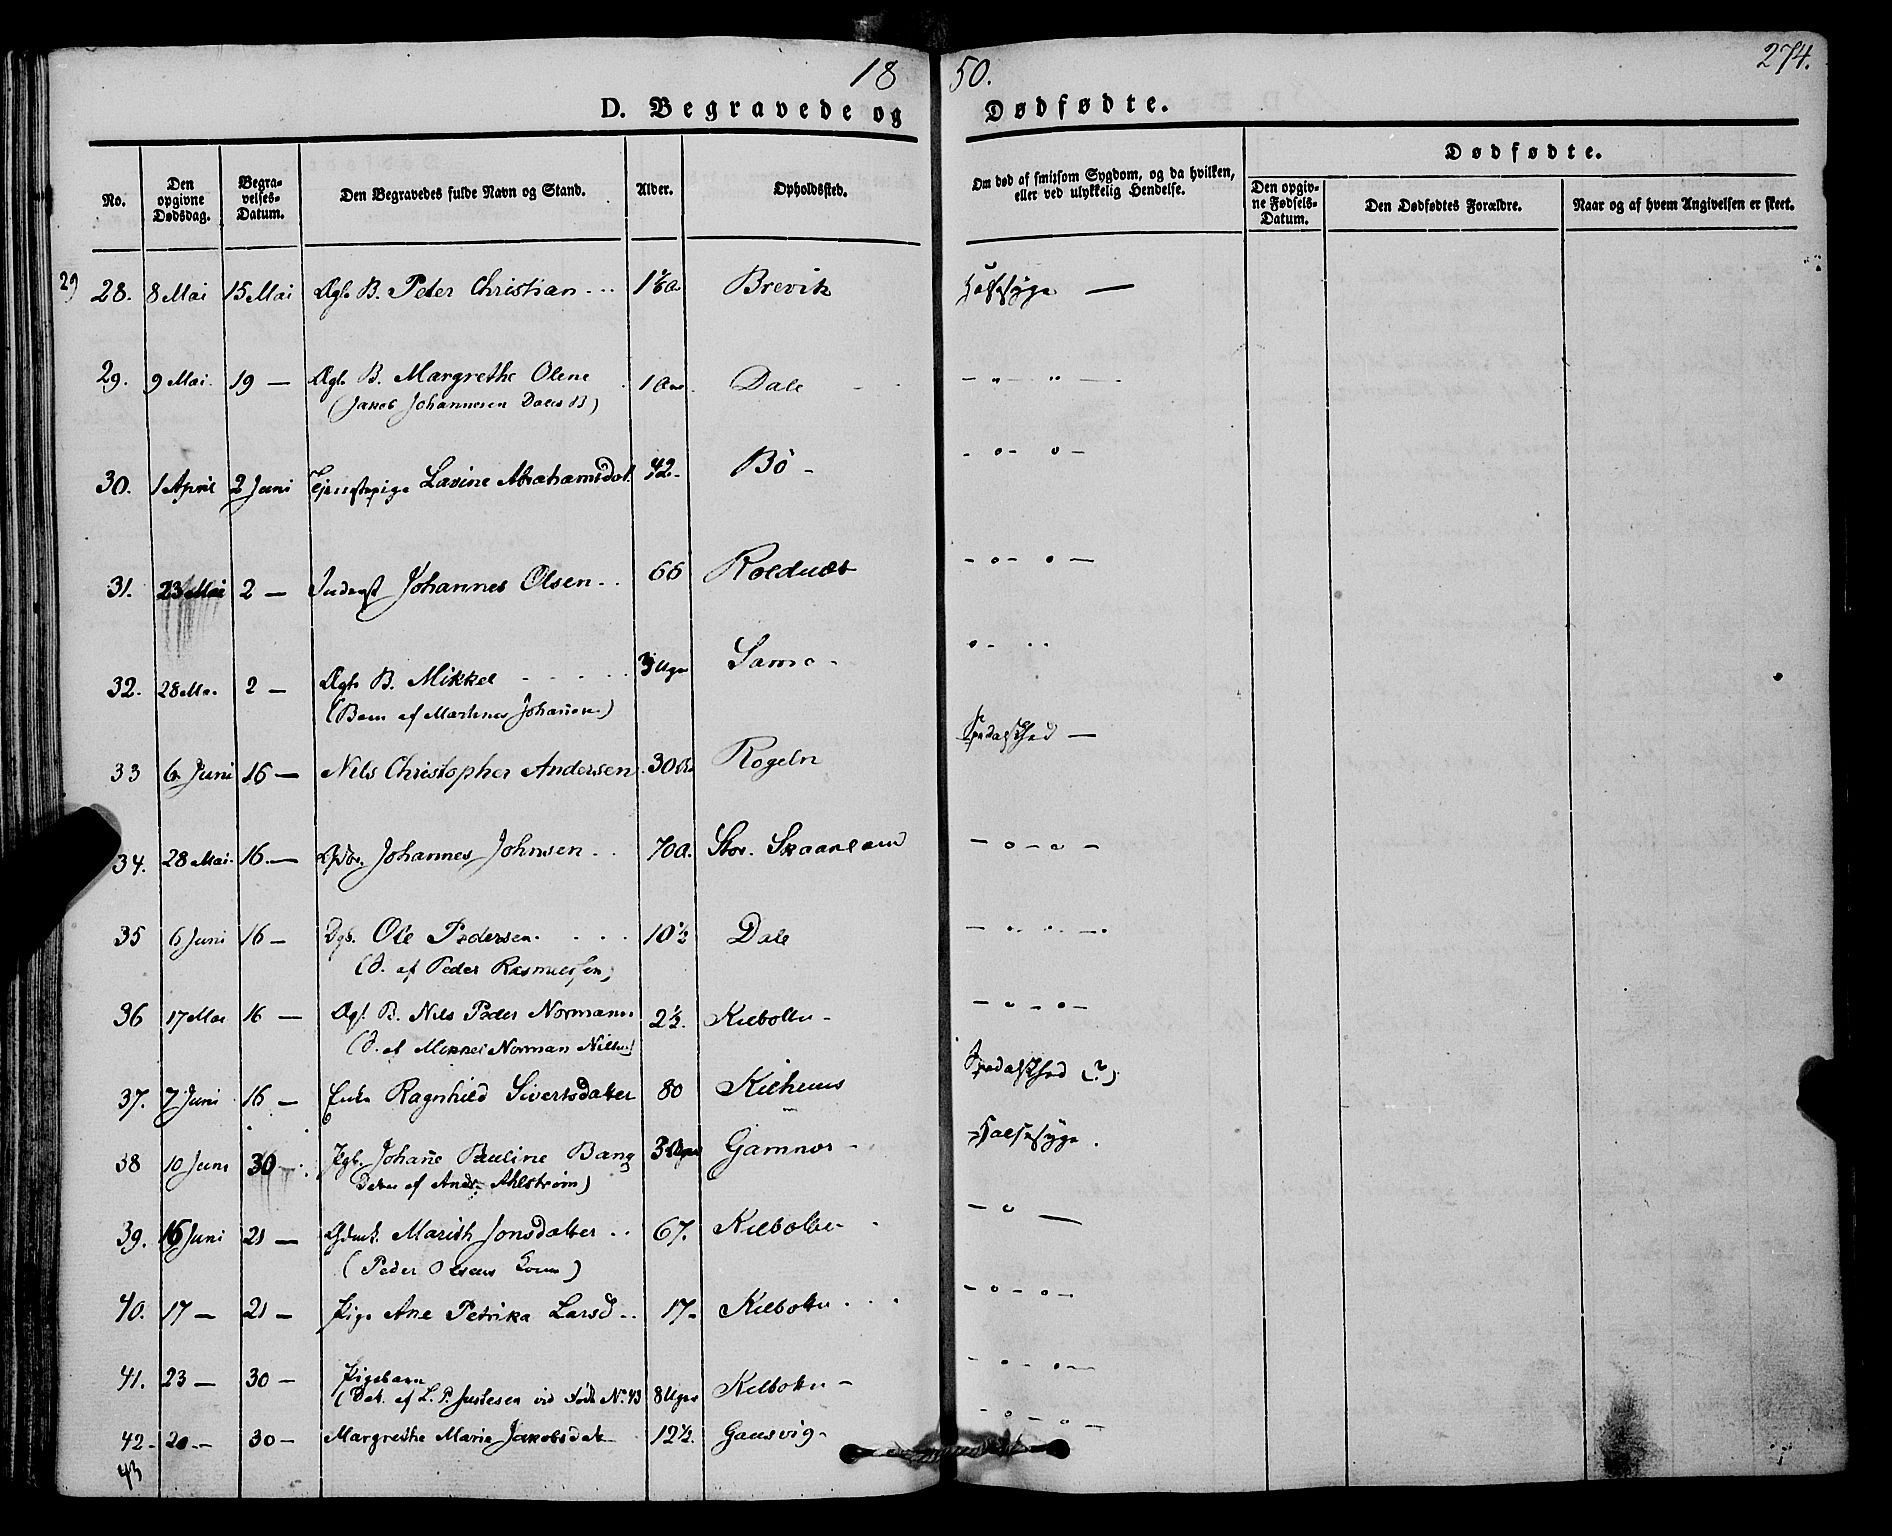 18 50. 274.
D. Begravede og Dødfødte.
No.
Den opgivne Dødsdag.
Begravelses-Datum.
Den Begravedes fulde Navn og Stand.
Alder.
Opholdssted.
Om død af smitsom Sygdom, og da hvilken, eller ved ulykkelig Hendelse.
Dødfødte.
Den opgivne Fødsels-Datum.
Den Dødfødtes Forældre.
Naar og af hvem Angivelsen er skeet.
29
28. 8 Mai 15 Mai Ægt. B. Peder Christian Brevik Halssyge —
29. 9 Mai. 19 — Ægt. B. Margrethe Olene 1 Dale - „ - „ -
(Jakob Johannesen Dales B)
30. 1 April 2 Juni Tjenestepige Lavine Abrahamsdat. 42 - Bö - - o - o -
31. 23 Mai 2 — Johannes Olsen 66 - o - o -
32. 28 Ma. 2 — Ægt. B. Mikkel 3 Uger Sama -
(Barn af Martines Johansen)
33 6 Juni 16 — Nils Christopher Andersen 30 Rogeln Spedalskhed —
34. 28 Mai. 16. — Johannes Johnsen 70 a. Stor. Skaareland - o - o -
35 6 Juni 16 — Ole Pedersen 10½ Dale
(S. af Peder Rasmussen)
36 17 Mai 16 — Ægt. B. Nils Peder Normann 2½. Kilbotn - - o - o -
(S. af Mikkel Norman Nilsen)
37. 7 Juni 16 — Enke Ragnhild Sivertsdatter 80 Kilhuus Spedalskhed (?)
38 10 Juni 30 Johane Pauline Bang 3 Uger Gamnes - Halssyge.
Datter af Andr. Ahlstrøm)
39. 16 Juni 21 — Marith Jonsdatter 67. Kilbotn - o —
(Peder Olsens Kone)
40. 17 — 21 — Pige Ane Petrika Larsd 17 - Kilbotn - o - o -
41. 23 — 30 — Pigebarn
(Dat. af L. P. Justesen vid Født No. 43 8 Uger Kilbotn - - o - o -
42 - 20 - 30 — Margrethe Maria Jakobsdat 12½. Gausvig - - o - o -
43